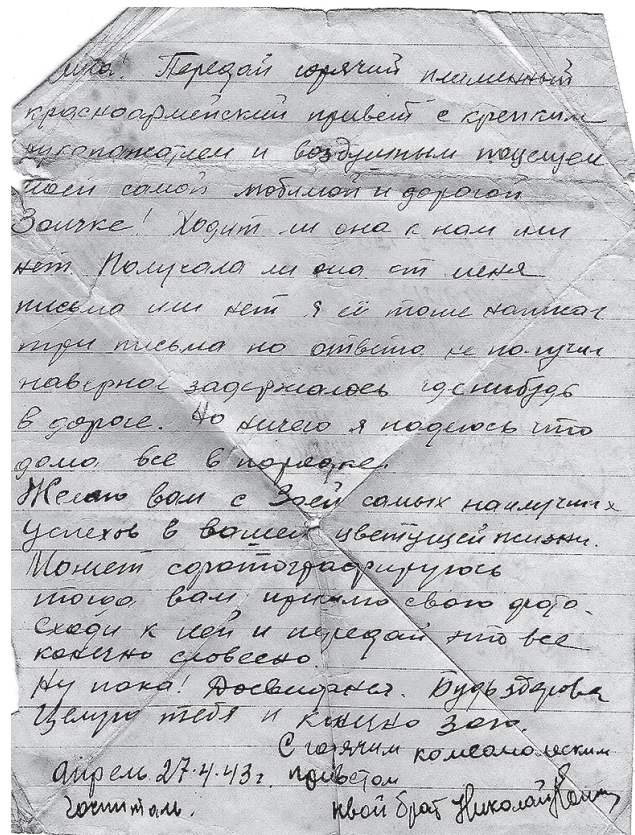 Передай горячий пламенный
красноармейский привет с крепким
рукопожатием и воздушным поцелуем
моей самой любимой и дорогой
Зоичке! Ходит ли она к нам или
нет. Получала ли она от меня
письма или нет я ей тоже написал
три письма но ответа не получил
наверное задержалось где нибудь
в дороге. Но ничего я надеюсь что
дома все в порядке.
Желаю вам с Зоей самых наилучших
успехов в вашей цветущей жизни.
Может сфотографируюсь
тогда вам пришлю свою фото.
Сходи к ней и передай это все
конечно словесно.
Ну пока! Досвиданья. Будь здорова
Целую тебя и конечно Зою.
С горячим комсомольским
приветом
Апрель 27.4.43г.
госпиталь.
твой брат Николай